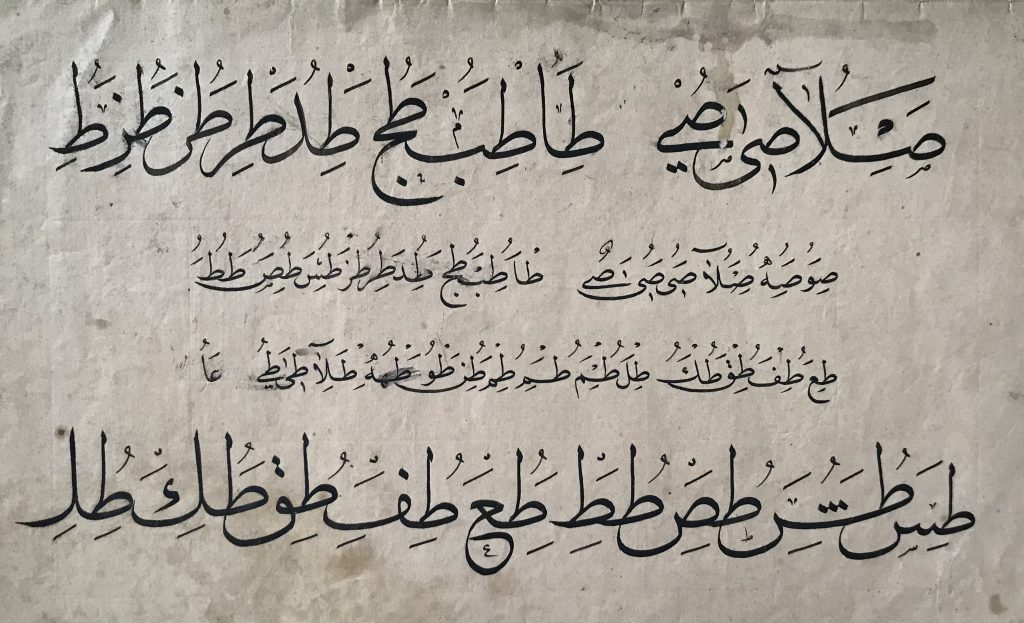 صلا صى صي طا طب طج طد طر طر طر ط
صو صه صلا صى صى صي طا طب طج طد طر طر طس طص طط
طع طف طق طك طل طم طم طم طن طو طه طلا طى طي عا
طس طس طص طط طع طف طق طك طل